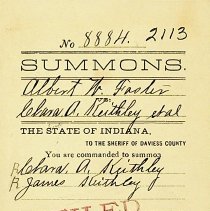 No 8884. 2113
SUMMONS.
Albert W. Foster
vs.
Clara A. Keithley et al
THE STATE OF INDIANA,
TO THE SHERIFF OF DAVIESS COUNTY
You are commanded to summon
R Clara. A. Keithley
R James Keithley
FILED